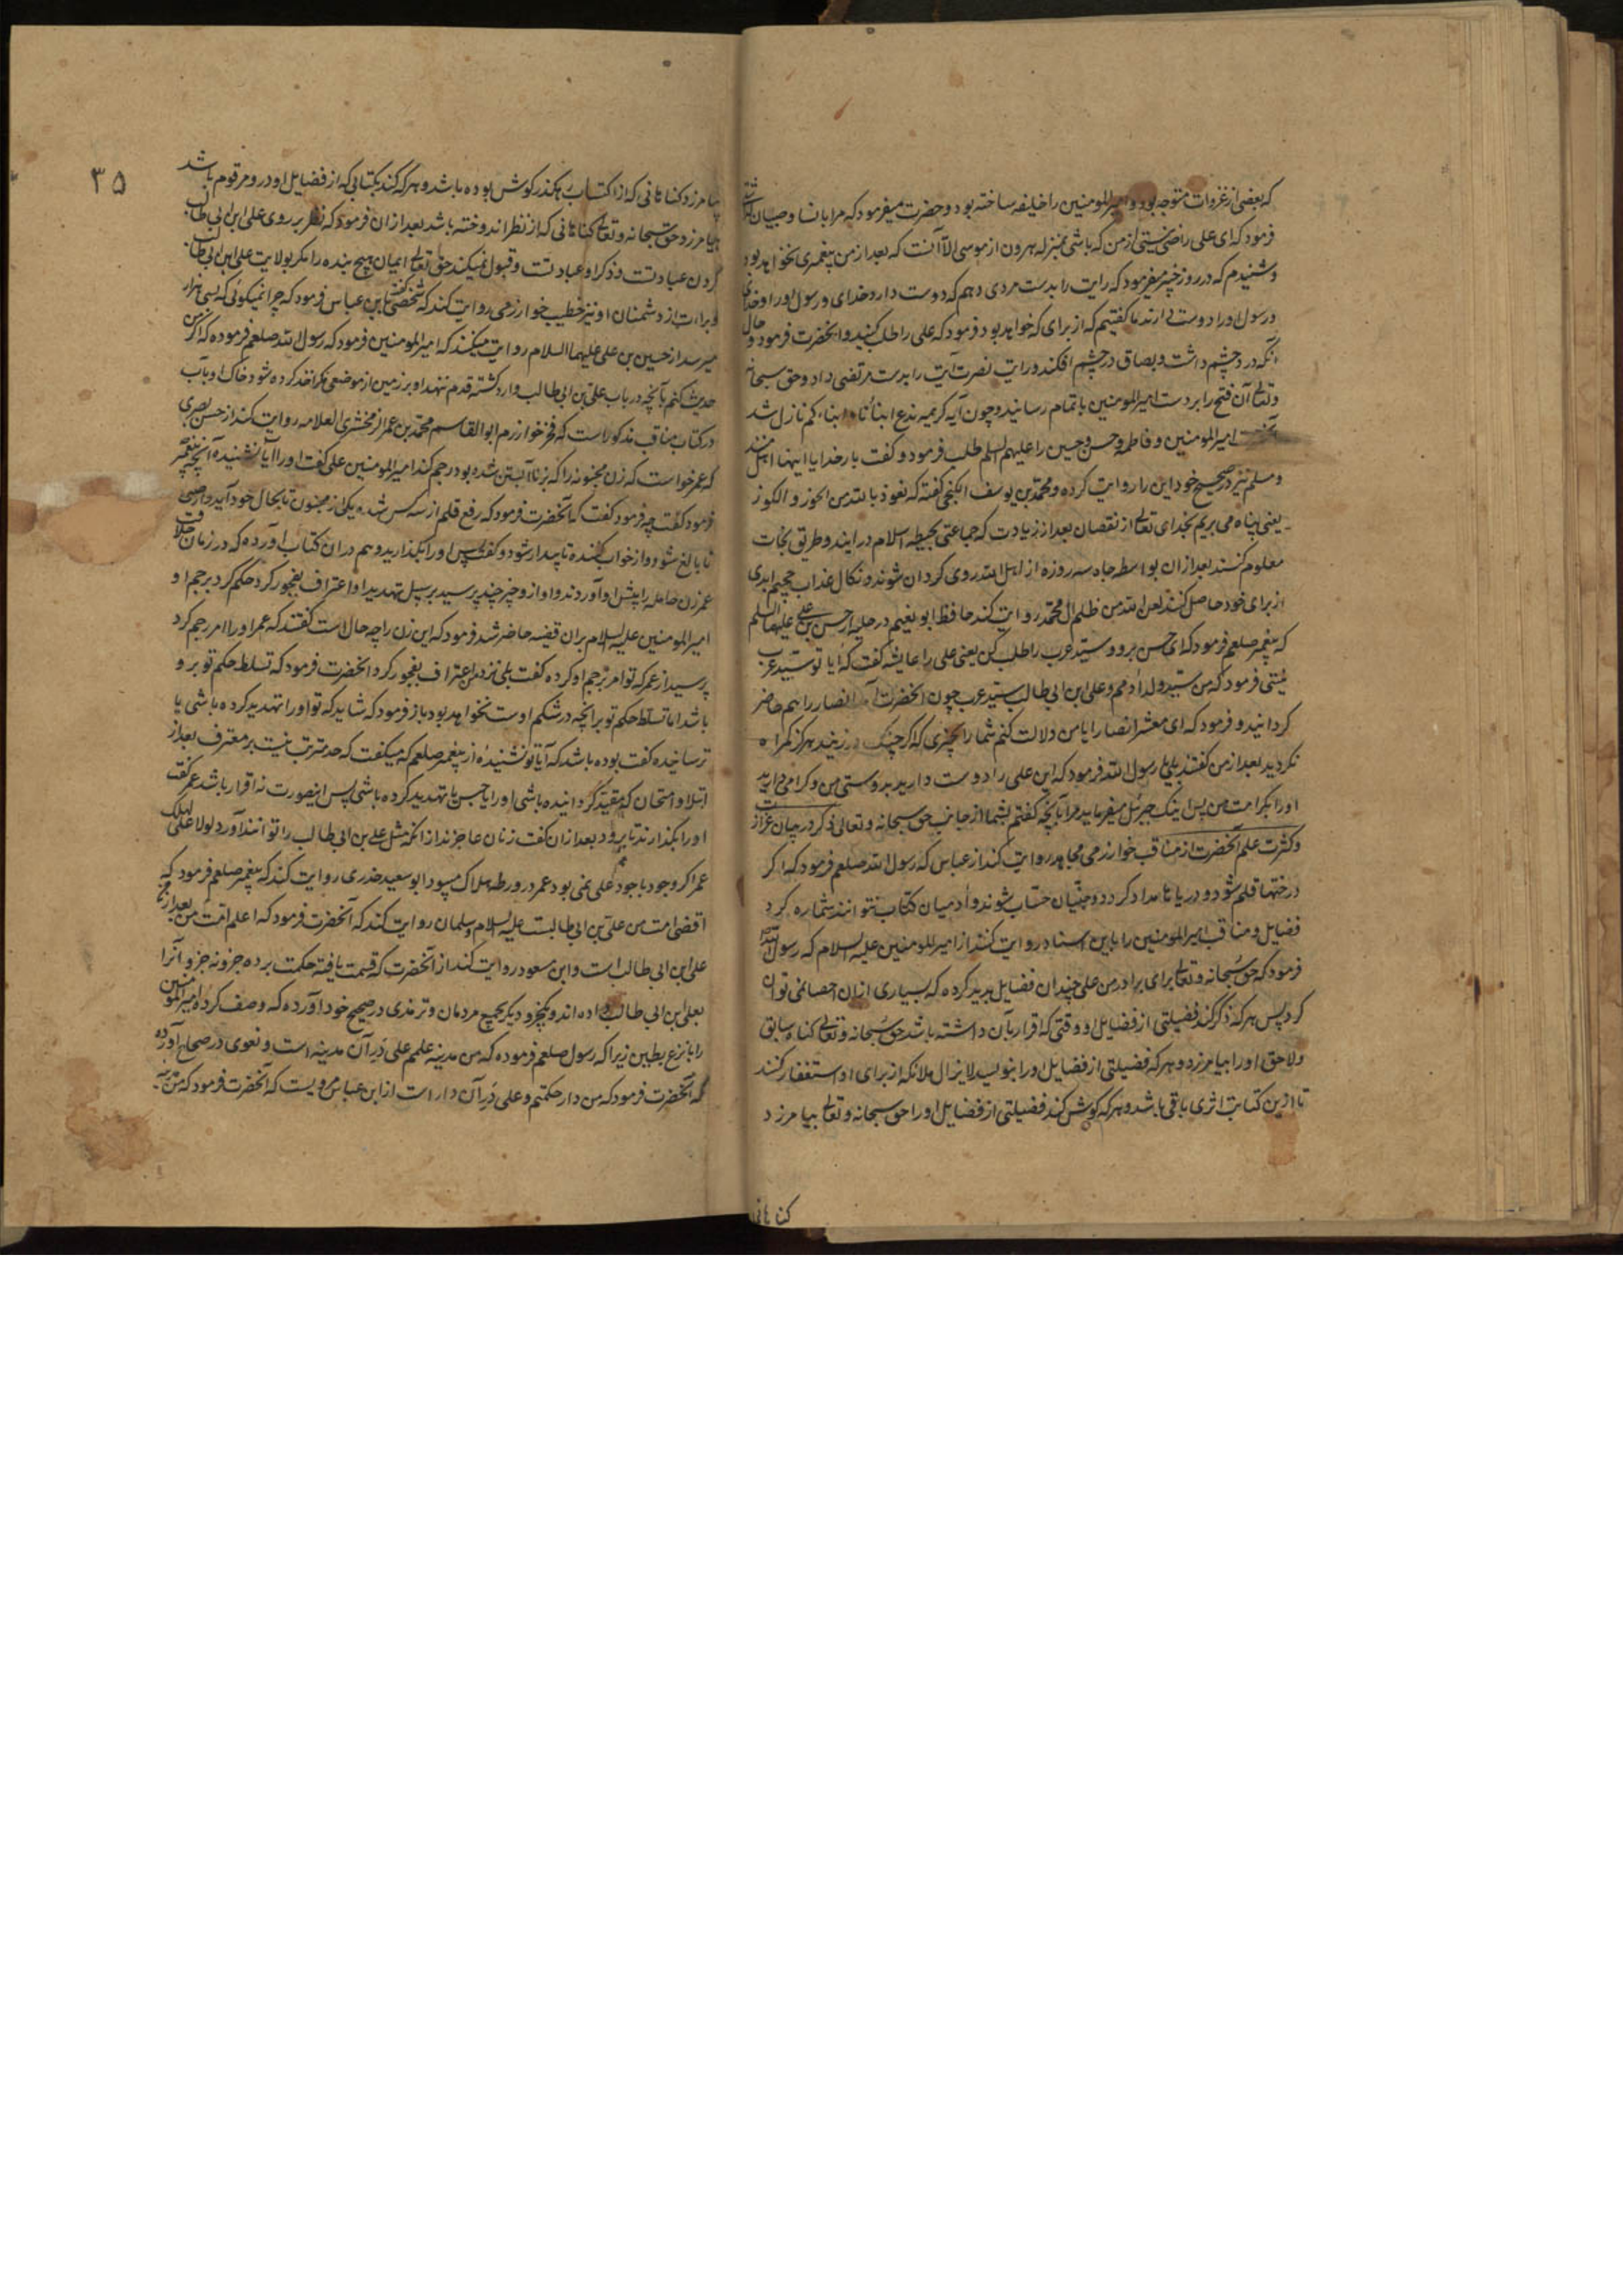 که بعضی از غزوات متوجه بود و امیرالمومنین را خلیفه ساخته بود و حضرت میفرمود که مرا با نسا و صبیان
فرمود که ای علی راضی نیستی از من که باشی بمنزله هرون از موسی الا آنست که بعد از من پیغمبری نخواهد بود
و شنیدم که در روز خیبر میفرمود که رایت را بدست مردی دهم که دوست دارد خدای و رسول او را و خدای
و رسول او را دوست دارند ما گفتیم که از برای که خواهد بود فرمود که علی را طلب کنید و آنحضرت فرمود و حال
آنکه درد چشم داشت و بصاق در چشم افکند و رایت نصرت آیت را بدست مرتضی داد و حق سبحانه
و تعالی آن فتح را بر دست امیرالمومنین باتمام رسانید و چون آیه کریمه ندع ابنائنا و ابناءکم نازل شد
آنحضرت امیرالمومنین و فاطمه و حسن و حسین را علیهم السلم طلب فرمود و گفت بار خدایا اینها اهل منند
و مسلم نیز در صحیح خود این را روایت کرده و محمد بن یوسف الکنجی گفته که نعوذ بالله من الحور و الکور
یعنی پناه می بریم بخدای تعالی از نقصان بعد از زیادت که جماعتی بحیطه اسلام در ایند و طریق نجات
معلوم کنند بعد از ان بواسطه جاه سه روزه از اهل الله روی کردان شوند و نکال عذاب جحیم ابدی
از برای خود حاصل کنند لعن الله من ظلم ال محمد روایت کند حافظ ابو نعیم در حلیه از حسن بن علی علیهما السلم
که پیغمبر صلعم فرمود که ای حسن برو و سید عرب را طلب کن یعنی علی را عایشه گفت که ایا تو سید عرب
نیستی فرمود که من سید ولد ادمم و علی ابن ابی طالب سید عرب چون آنحضرت آمد انصار را هم حاضر
کردانید و فرمود که ای معشر انصار ایا من دلالت کنم شما را بچیزی که اگر چنگ در زنید هرگز کمراه
نکردید بعد از من گفتند بلی یا رسول الله فرمود که این علی را دوست دارید بدوستی من و کرامی دارید
او را بکرامت من پس اینک جبرئیل میفرماید مرا بآنچه گفتم بشما از جانب حق سبحانه و تعالی ذکر در بیان
و کثرت علم آنحضرت از مناقب خوارزمی مجاهد روایت کند از عباس که رسول الله صلعم فرمود که اگر
درختها قلم شود و دریاها مداد کردد و جنیان حساب شوند و آدمیان کتاب نتوانند شماره کرد
فضایل و مناقب امیرالمومنین را باین اسناد روایت کنند از امیرالمومنین علیه السلام که رسول الله
فرمود که حق سبحانه و تعالی برای برادر من علی چندان فضایل پدید کرده که بسیاری از ان احصا نمی توان
کرد پس هر که ذکر کند فضیلتی از فضایل او وقتی که اقرار بآن داشته باشد حق سبحانه و تعالی کناه سابق
و لاحق او را بیامرزد و هر که فضیلتی از فضایل او را بنویسد لایزال ملائکه از برای او استغفار کنند
تا از این کتابت اثری باقی باشد و هر که کوش کند فضیلتی از فضایل او را حق سبحانه و تعالی بیامرزد
کناهانی
۳۵
بیامرزد کناهانی که از اکتساب رهکذر کوش بوده باشد و هر که کند بکتابی که از فضایل او در و مرقوم باشد
بیامرزد حق سبحانه و تعالی کناهانی که از نظر اندوخته باشد بعد از ان فرمود که نظر بر روی علی ابن ابی طالب
کردن عبادتست و ذکر او عبادتست و قبول نمیکند حق تعالی ایمان هیچ بنده را مکر بولایت علی ابن ابی طالب
و براءت از دشمنان او و نیز خطیب خوارزمی روایت کند که شخصی گفت بابن عباس فرمود که چرا نمیکوئی که بسی هزار
میرسد از حسین بن علی علیهما السلام روایت میکنند که امیرالمومنین فرمود که رسول الله صلعم فرموده که اگر من
حدیث کنم بآنچه در باب علی بن ابی طالب وارد کشته قدم ننهد او بر زمین از موضعی مکر اخذ کرده شود خاک او بآب
در کتاب مناقب مذکور است که فخر خوارزم ابوالقاسم محمود بن عمر الزمخشری العلامه روایت کند از حسن بصری
که عمر خواست که زن مجنونه را که بزنا آبستن شده بود رجم کند امیرالمومنین علی گفت او را آیا نشنیده آنچه پیغمبر
فرمود گفت چه فرمود گفت که آنحضرت فرمود که رفع قلم از سه کس شده یکی از مجنون تا بحال خود آید و از صبی
تا بالغ شود و از خواب کننده تا بیدار شود و گفت پس او را بکذارید و هم در ان کتاب آورده که در زمان خلافت
عمر زن حامله را پیش او آوردند و او از و چیز چند پرسید بر سبیل تهدید او اعتراف بفجور کرد حکم کرد برجم او
امیرالمومنین علیه السلام بر ان قضیه حاضر شد فرمود که این زن را چه حال است گفتند که عمر او را امر رجم کرد
پرسید از عمر که تو امر برجم او کرده گفت بلی نزد من اعتراف بفجور کرد آنحضرت فرمود که تسلط حکم تو بر و
باشد اما تسلط حکم تو بر آنچه در شکم اوست نخواهد بود باز فرمود که شاید که تو او را تهدید کرده باشی یا
ترسانیده گفت بوده باشد که آیا تو نشنیده از پیغمبر صلعم که میگفت که حد مترتب نیست بر معترف بعد از
ابتلا و امتحان که مقید کردانیده باشی او را یا حبس یا تهدید کرده باشی پس اینصورت نه اقرار باشد عمر گفت
او را بکذارند تا برود بعد از ان گفت زنان عاجزند از انکه مثل علی بن ابی طالب را توانند آورد لولا علی لهلک
عمر اگر وجود با جود علی نمی بود عمر در ورطه هلاک میبود ابو سعید خدری روایت کند که پیغمبر صلعم فرمود که
اقضی امت من علی بن ابی طالبست علیه السلام و سلمان روایت کند که آنحضرت فرمود که اعلم امت من بعد از من
علی ابن ابی طالب است و ابن مسعود روایت کند از آنحضرت که قسمت یافته حکمت بر ده جزو نه جزو آنرا
بعلی ابن ابی طالب داده اند و یکجزو دیگر بجمیع مردمان و ترمذی در صحیح خود آورده که وصف کرده امیرالمومنین
را بانزع بطین زیرا که رسول صلعم فرموده که من مدینه علمم علی در آن مدینه است و بغوی در صحاح آورده
که آنحضرت فرمود که من دار حکمتم و علی در آن دار است از ابن عباس مرویست که آنحضرت فرمود که من